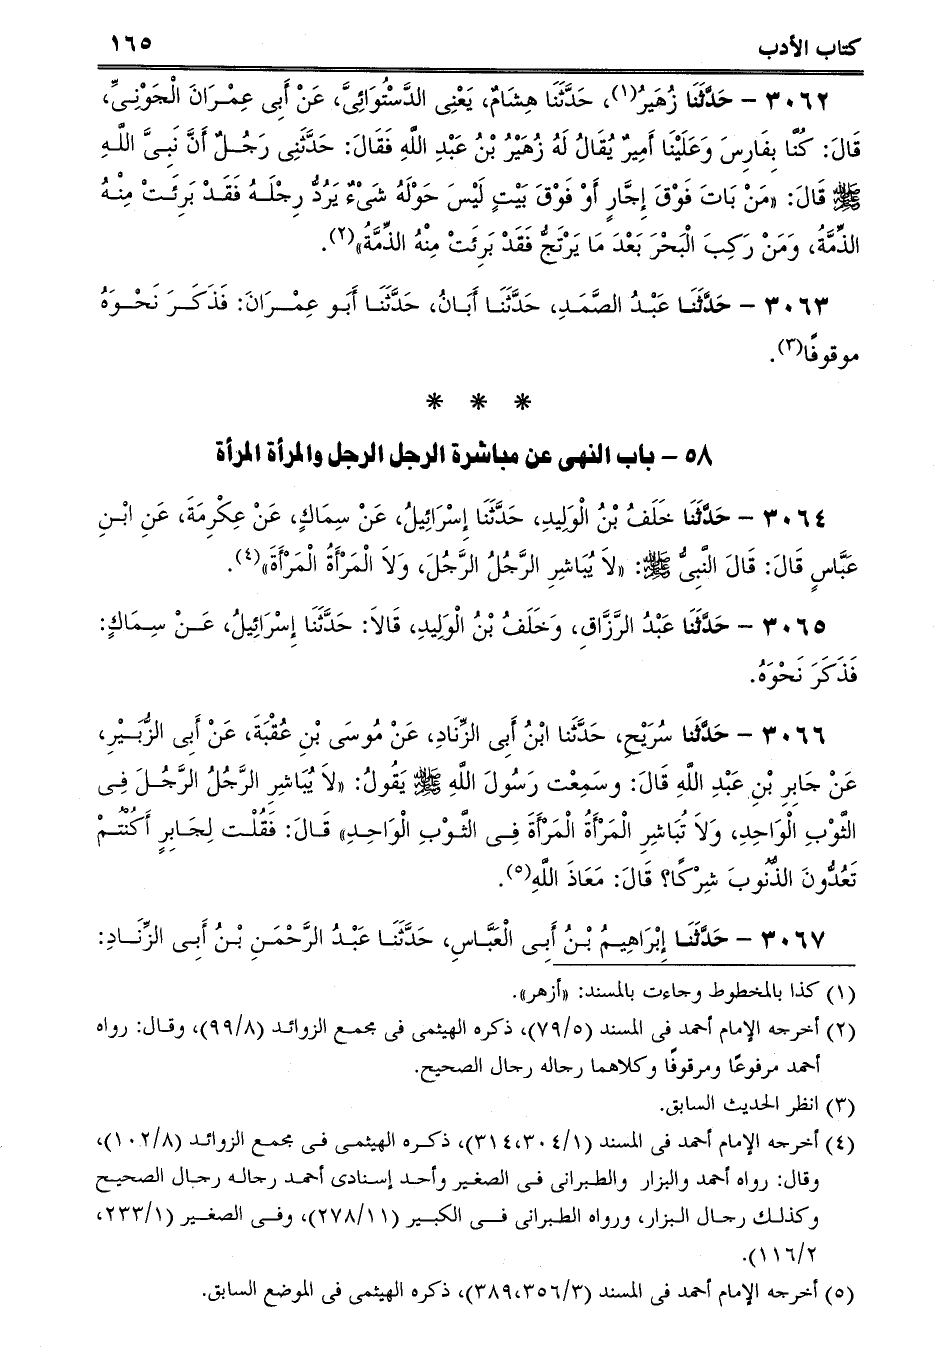 كتاب الأدب ١٦٥
٣٠٦٢ - حَدَّثَنَا زُهَيرُ(١)، حَدَّثَنَا هِشَامٌ، يَعْنِى الدَّسْتُوَائِىَّ، عَنْ أَبِى عِمْرَانَ الْجَوْنِىِّ،
قَالَ: كُنَّا بِفَارِسَ وَعَلَيْنَا أَمِيرٌ يُقَالُ لَهُ زُهَيْرُ بْنُ عَبْدِ اللَّهِ فَقَالَ: حَدَّثَنِى رَجُلٌ أَنَّ نَبِىَّ اللَّهِ
ﷺ قَالَ: «مَنْ بَاتَ فَوْقَ إِجَّارٍ أَوْ فَوْقَ بَيْتٍ لَيْسَ حَوْلَهُ شَىْءٌ يَرُدُّ رِجْلَهُ فَقَدْ بَرِئَتْ مِنْهُ
الذِّمَّةُ، وَمَنْ رَكِبَ الْبَحْرَ بَعْدَ مَا يَرْتَجُّ فَقَدْ بَرِئَتْ مِنْهُ الذِّمَّةُ»(٢).
٣٠٦٣ - حَدَّثَنَا عَبْدُ الصَّمَدِ، حَدَّثَنَا أَبَانُ، حَدَّثَنَا أَبو عِمْرَانَ: فَذَكَرَ نَحْوَهُ
موقوفًا(٣).
* * *
٥٨ - باب النهى عن مباشرة الرجل الرجل والمرأة المرأة
٣٠٦٤ - حَدَّثَنَا خَلَفُ بْنُ الْوَلِيدِ، حَدَّثَنَا إِسْرَائِيلُ، عَنْ سِمَاكٍ، عَنْ عِكْرِمَةَ، عَنِ ابْنِ
عَبَّاسٍ قَالَ: قَالَ النَّبِىُّ ﷺ: «لاَ يُبَاشِرِ الرَّجُلُ الرَّجُلَ، وَلاَ الْمَرْأَةُ الْمَرْأَةَ»(٤).
٣٠٦٥ - حَدَّثَنَا عَبْدُ الرَّزَّاقِ، وَخَلَفُ بْنُ الْوَلِيدِ، قَالاَ: حَدَّثَنَا إِسْرَائِيلُ، عَنْ سِمَاكٍ:
فَذَكَرَ نَحْوَهُ.
٣٠٦٦ - حَدَّثَنَا سُرَيْجٍ، حَدَّثَنَا ابْنُ أَبِى الزِّنَادِ، عَنْ مُوسَى بْنِ عُقْبَةَ، عَنْ أَبِى الزُّبَيْرِ،
عَنْ جَابِرِ بْنِ عَبْدِ اللَّهِ قَالَ: وسَمِعْت رَسُولَ اللَّهِ ﷺ يَقُولُ: «لاَ يُبَاشِرِ الرَّجُلُ الرَّجُلَ فِى
الثَّوْبِ الْوَاحِدِ، وَلاَ تُبَاشِرِ الْمَرْأَةُ الْمَرْأَةَ فِى الثَّوْبِ الْوَاحِدِ» قَالَ: فَقُلْت لِجَابِرٍ أَكُنْتُمْ
تَعُدُّونَ الذُّنُوبَ شِرْكًا؟ قَالَ: مَعَاذَ اللَّهِ(٥).
٣٠٦٧ - حَدَّثَنَا إِبْرَاهِيمُ بْنُ أَبِى الْعَبَّاسِ، حَدَّثَنَا عَبْدُ الرَّحْمَنِ بْنُ أَبِى الزِّنَادِ:
(١) كذا بالمخطوط وجاءت بالمسند: «أزهر».
(٢) أخرجه الإمام أحمد فى المسند (٧٩/٥)، ذكره الهيثمى فى مجمع الزوائد (٩٩/٨)، وقال: رواه
أحمد مرفوعًا ومرقوفًا وكلاهما رجاله رجال الصحيح.
(٣) انظر الحديث السابق.
(٤) أخرجه الإمام أحمد فى المسند (٣١٤،٣٠٤/١)، ذكره الهيثمى فى مجمع الزوائد (١٠٢/٨)،
وقال: رواه أحمد والبزار والطبرانى فى الصغير وأحد إسنادى أحمد رجاله رجال الصحيح
وكذلك رجال البزار، ورواه الطبرانى فى الكبير (٢٧٨/١١)، وفى الصغير (٢٣٣/١،
١١٦/٢).
(٥) أخرجه الإمام أحمد فى المسند (٣٨٩،٣٥٦/٣)، ذكره الهيثمى فى الموضع السابق.